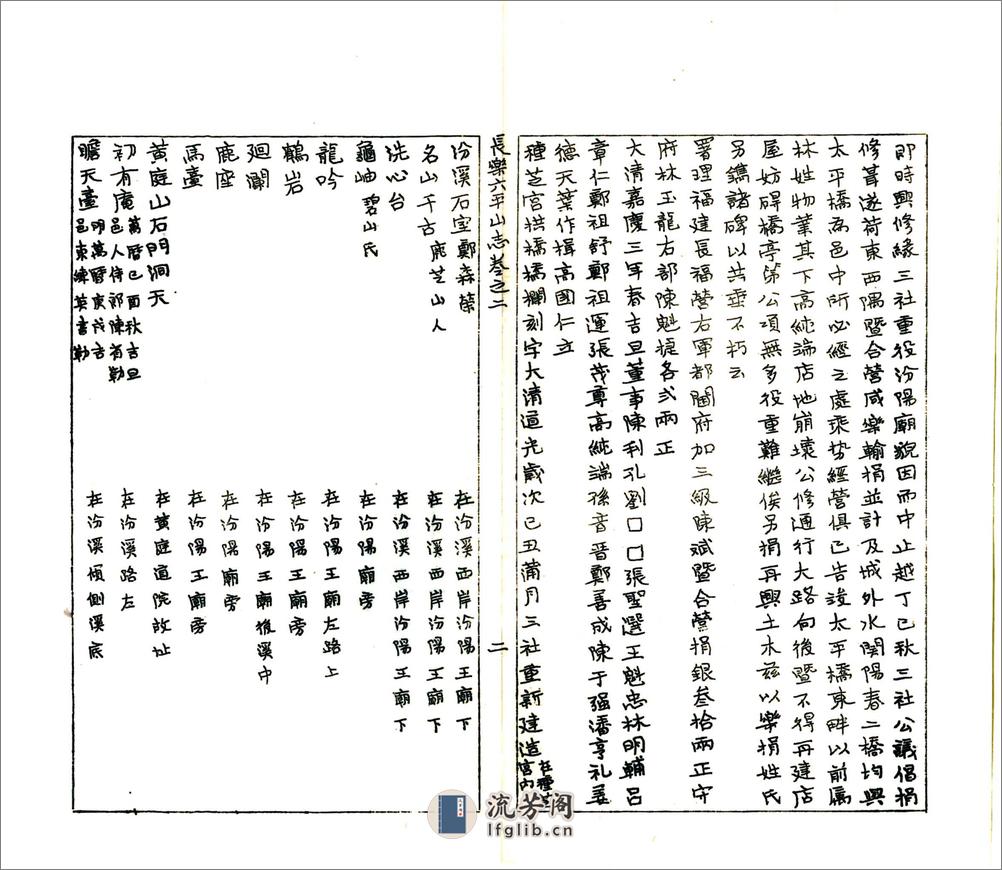 即時興修緣三社重役汾陽廟貌因而中止越丁巳秋三社公議倡捐
修葺遂荷東西隅暨合營咸樂輸捐並計及城外水関陽春二橋均興
太平橋為邑中所必經之處乘势經營俱已告竣太平橋東畔以前属
林姓物業其下高純端店地崩壞公修通行大路向後暨不得再建店
屋妨碍橋亭第公項無多役重難繼俟另捐再興土木兹以樂捐姓氏
另鐫諸碑以共垂不朽云
署理福建長福營右軍都閫府加三級陳斌暨合營捐銀叁拾兩正守
府林玉龍右部陳魁捷各弍兩正
大清嘉慶三年春吉旦董事陳利孔劉口口張聖選王魁忠林明輔呂
章仁鄭祖舒鄭祖運張茂尊高純端孫音晋鄭善成陳于强潘亨礼姜
德天葉作楫高國仁立
種芝宮拱橋橋欄刻字大清道光歲次己丑蒲月三社重新建造在種芝宮内
長樂六平山志卷之二
二
汾溪石室鄭森榮 在汾溪西岸汾陽王廟下
名山千古鹿芝山人 在汾溪西岸汾陽王廟下
洗心台 在汾溪西岸汾陽王廟下
龜岫碧山氏 在汾陽廟旁
龍吟 在汾陽王廟左路上
鶴岩 在汾陽王廟旁
廻瀾 在汾陽王廟後溪中
鹿座 在汾陽廟旁
馬臺 在汾陽王廟旁
黄庭山石門洞天 在黄庭道院故址
初有庵萬曆己酉秋吉旦邑人侍郎陳有勒 在汾溪路左
瞻天臺明萬曆庚戌吉邑東練英書勒 在汾溪傾側溪底
流芳阁
lfglib.cn